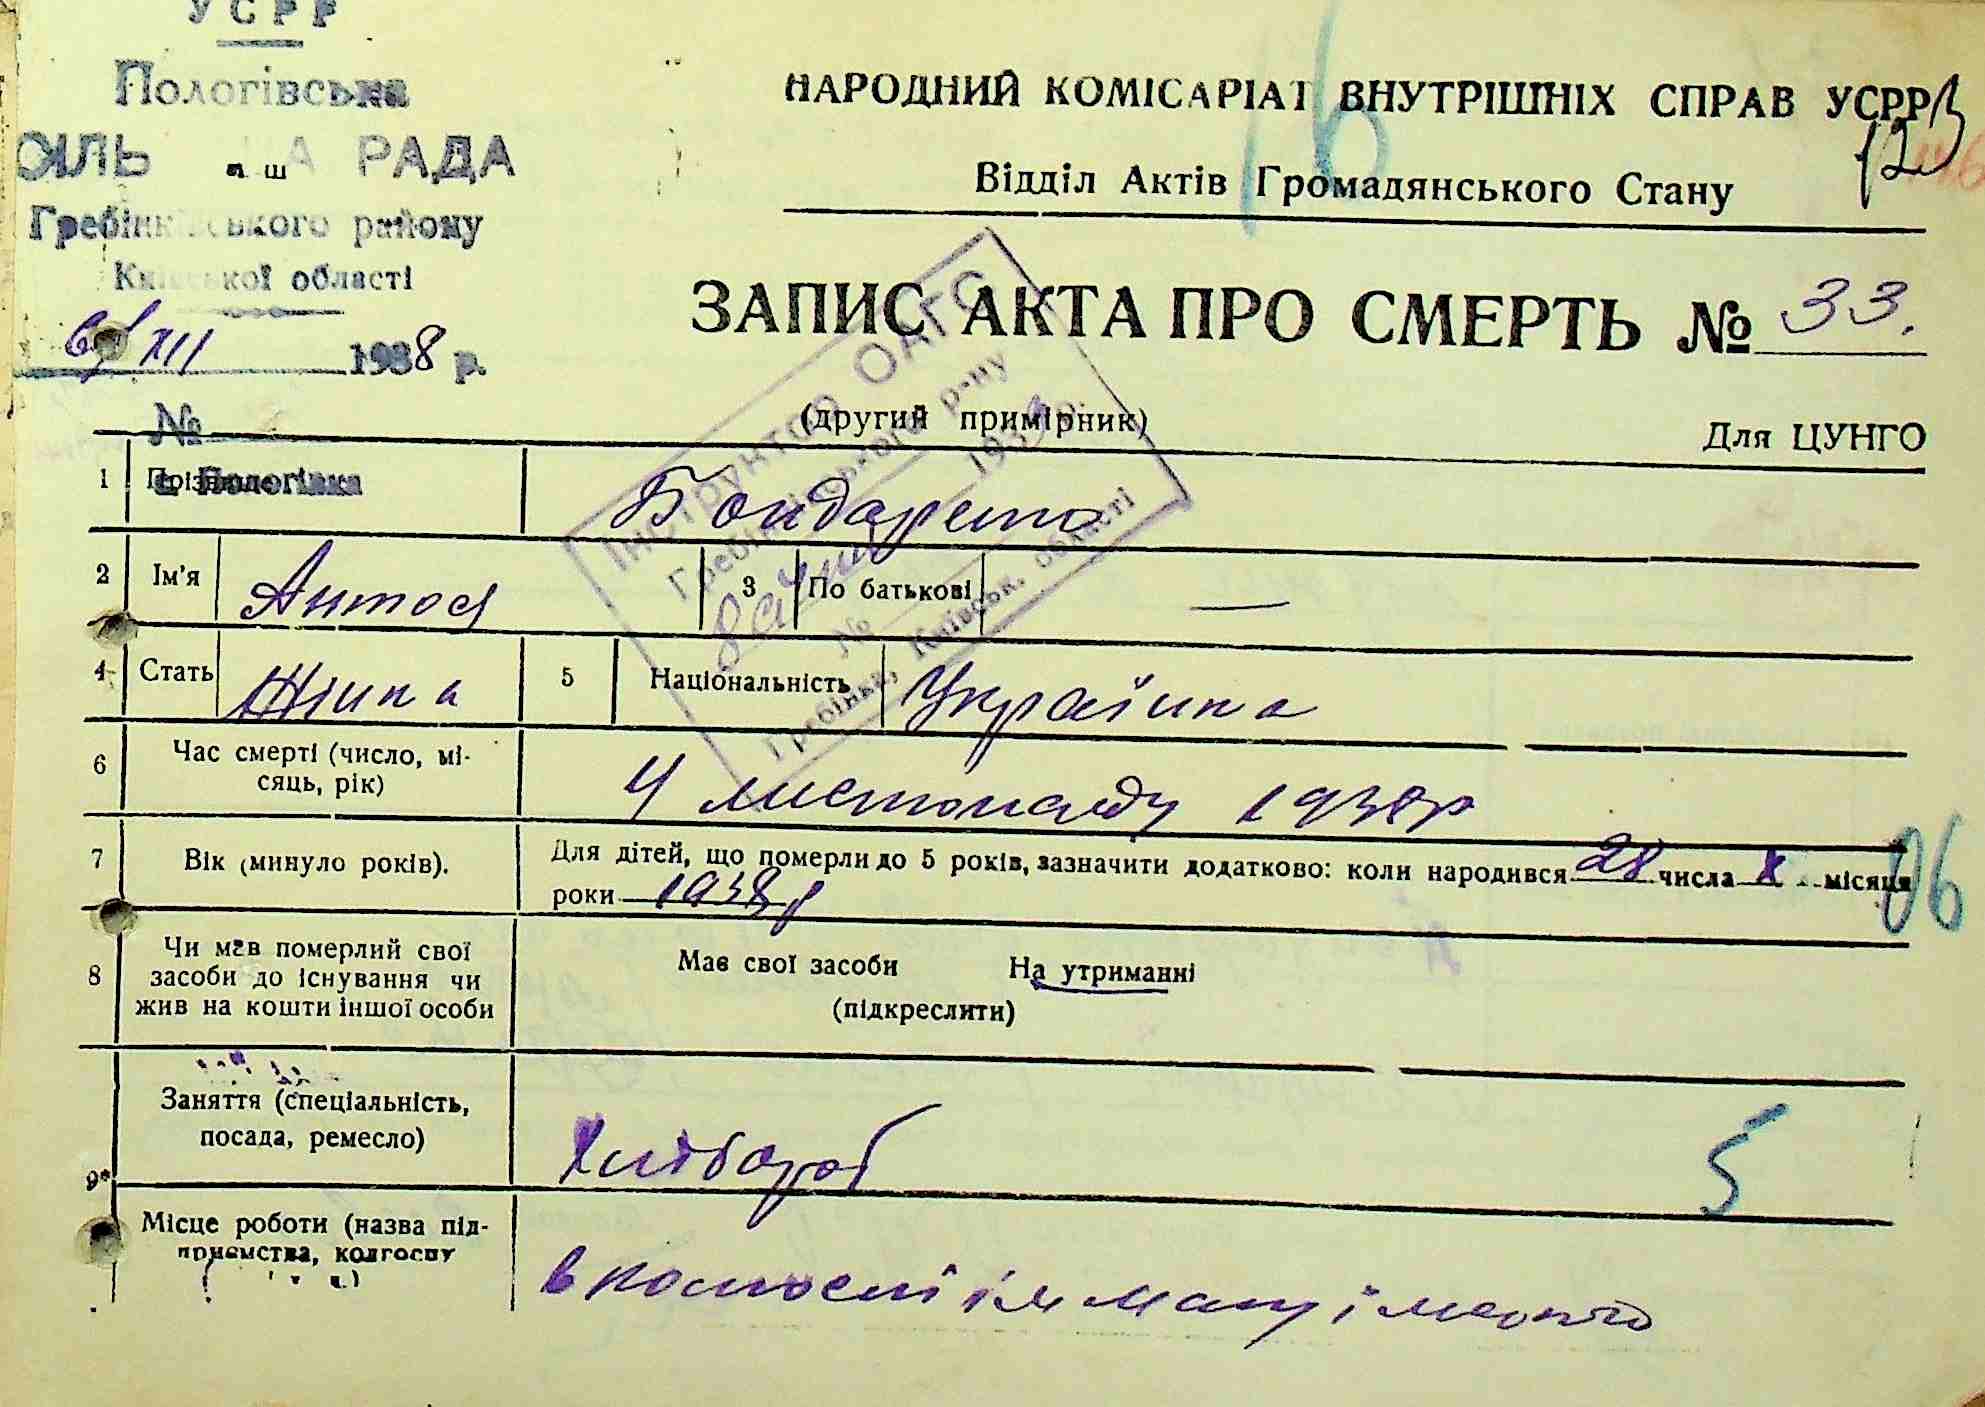 УСРР
Пологівська
СІЛЬ РАДА
Гребінківського району
Київської області
6/XII 1938 р.
№
с. Пологівка
НАРОДНИЙ КОМІСАРІАТ ВНУТРІШНІХ СПРАВ УСРР
Відділ Актів Громадянського Стану
16
123
ЗАПИС АКТА ПРО СМЕРТЬ № 33.
(другий примірник)
Для ЦУНГО
Інструктор ОАГС
Гребінківського р-ну
193 р.
№
Гребінка, Київськ. області
1 Прізвище Бондаренко
2 Ім'я Антося 3 По батькові —
4 Стать Жінка 5 Національність Українка
6 Час смерті (число, мі-
сяць, рік) 4 листопаду 1938р
7 Вік (минуло років). Для дітей, що померли до 5 років, зазначити додатково: коли народився 28 числа X місяця
роки 1938р
06
8 Чи мав померлий свої
засоби до існування чи
жив на кошти іншої особи
Має свої засоби На утриманні
(підкреслити)
9* Заняття (спеціальність,
посада, ремесло) Хлібороб
5
Місце роботи (назва під-
приємства, колгоспу
в колгоспі ім